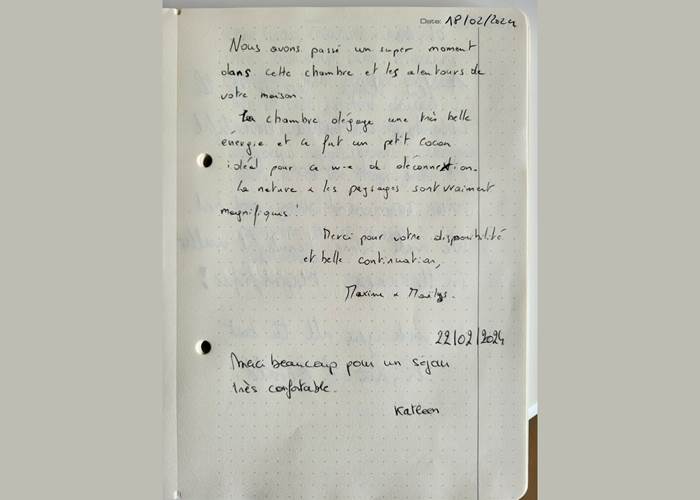 Date: 18/02/2024
Nous avons passé un super moment
dans cette chambre et les alentours de
votre maison.
La chambre dégage une très belle
énergie et ce fut un petit cocon
idéal pour ce w-e de déconnextion.
La nature & les paysages sont vraiment
magnifiques !
Merci pour votre disponibilité
et belle continuation,
Maxime & Maëlys.
22/02/2024
Merci beaucoup pour un séjour
très confortable.
Katleen